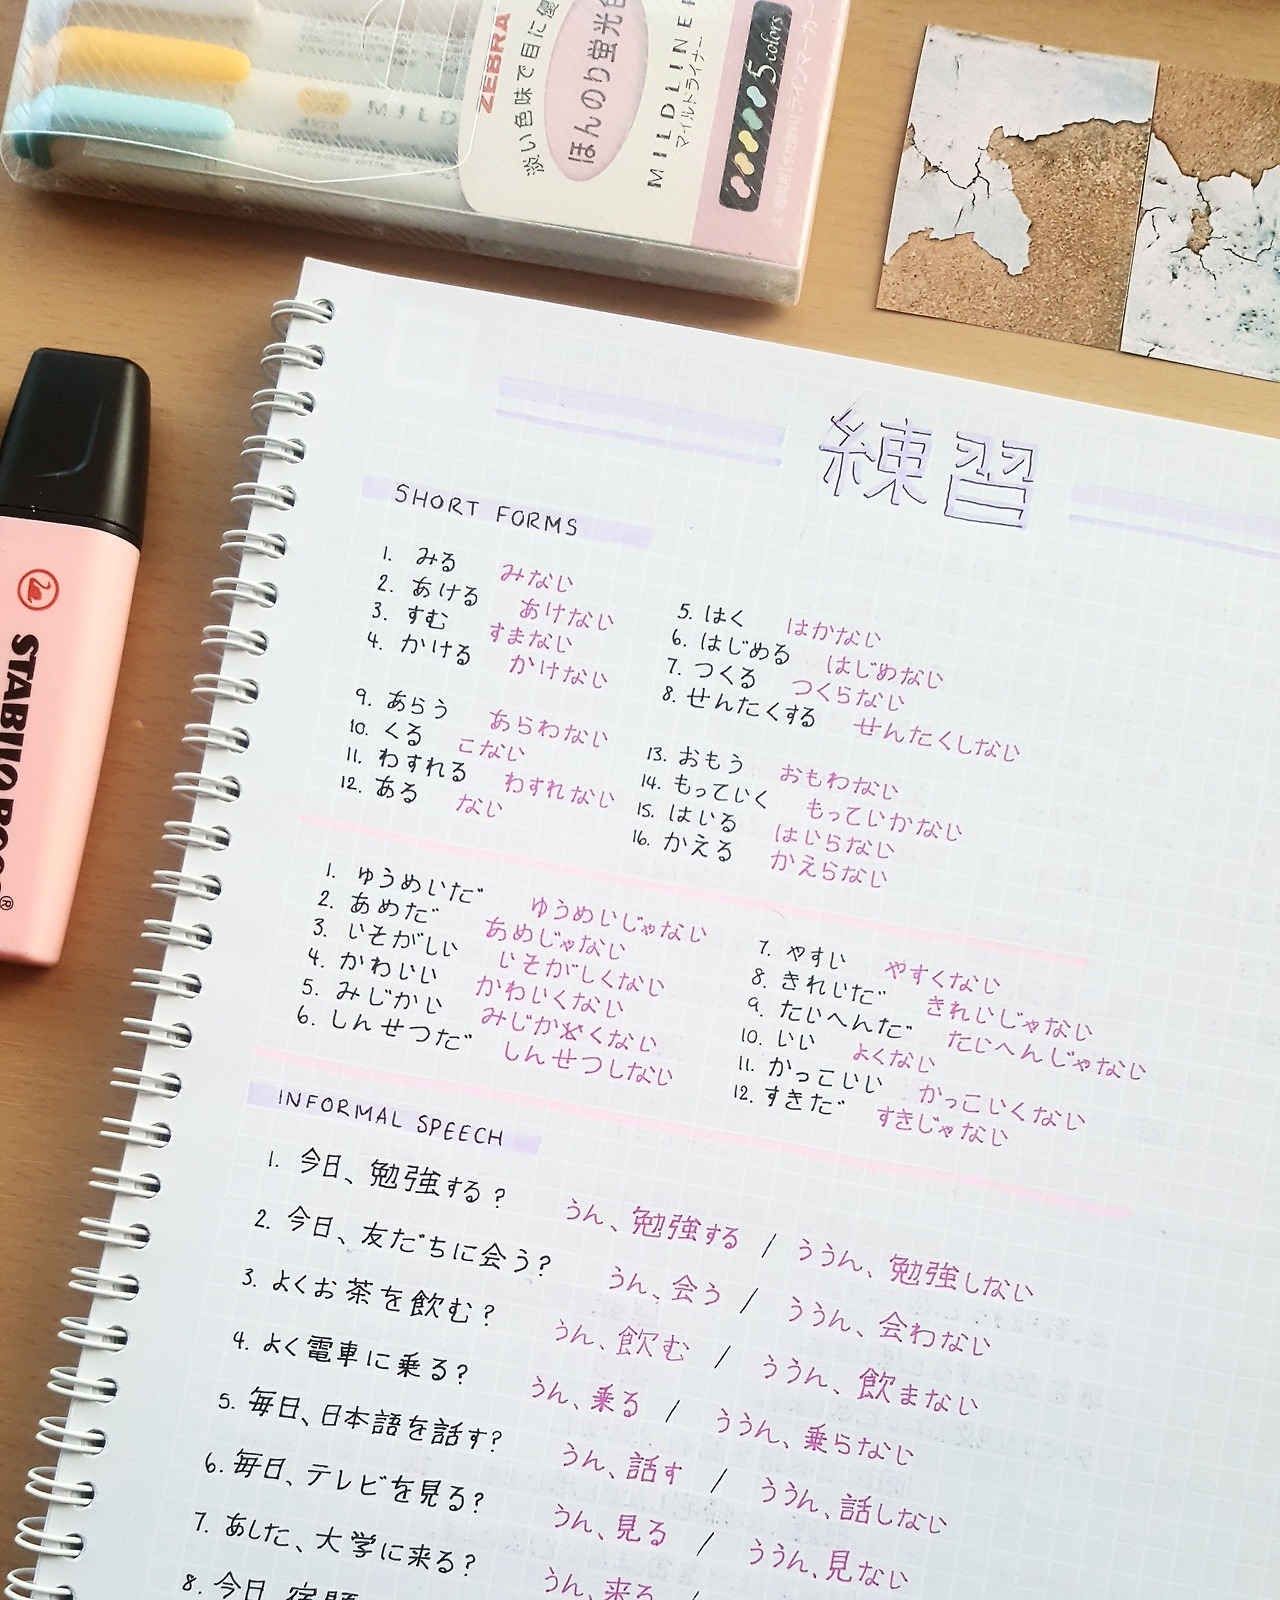 ZEBRA
淡い色味で目に優
ほんのり蛍光色
MILDLINER
マイルドライナー
5 colors
ラインマーカー
MILD
STABILO BOSS®
練習
SHORT FORMS
1. みる みない
2. あける あけない
3. すむ すまない
4. かける かけない
5. はく はかない
6. はじめる はじめない
7. つくる つくらない
8. せんたくする せんたくしない
9. あらう あらわない
10. くる こない
11. わすれる わすれない
12. ある ない
13. おもう おもわない
14. もっていく もっていかない
15. はいる はいらない
16. かえる かえらない
1. ゆうめいだ ゆうめいじゃない
2. あめだ あめじゃない
3. いそがしい いそがしくない
4. かわいい かわいくない
5. みじかい みじかくない
6. しんせつだ しんせつしない
7. やすい やすくない
8. きれいだ きれいじゃない
9. たいへんだ たいへんじゃない
10. いい よくない
11. かっこいい かっこいくない
12. すきだ すきじゃない
INFORMAL SPEECH
1. 今日、勉強する? うん、勉強する / ううん、勉強しない
2. 今日、友だちに会う? うん、会う / ううん、会わない
3. よくお茶を飲む? うん、飲む / ううん、飲まない
4. よく電車に乗る? うん、乗る / ううん、乗らない
5. 毎日、日本語を話す? うん、話す / ううん、話しない
6. 毎日、テレビを見る? うん、見る / ううん、見ない
7. あした、大学に来る? うん、来る /
8. 今日 宿題